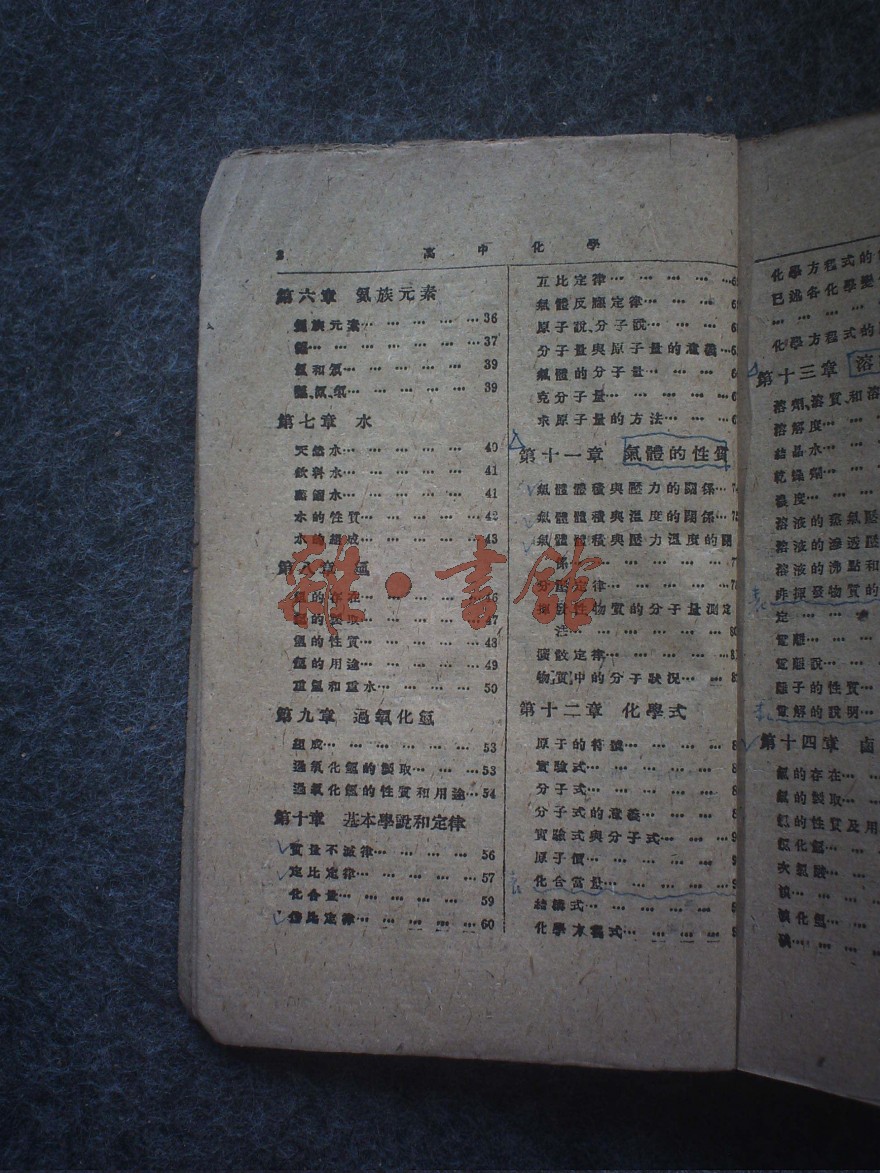 2 高中化學
第六章 氦族元素
氦族元素… … … … …36
氦… … … … … …37
氬和氖… … … … … 39
氪、氙、氡… … … … … 39
第七章 水
天然水… … … … … 40
飲料水… … … … … 41
蒸餾水… … … … … 41
水的性質… … … … … 42
水的組成… … … … … 43
第八章 氫
氫的存在… … … … …46
氫的製取… … … … …47
氫的性質… … … … …48
氫的用途… … … … …49
重氫和重水… … … … … 50
第九章 過氧化氫
組成… … … … … … 53
過氧化氫的製取… … …53
過氧化氫的性質和用途…54
第十章 基本學說和定律
質量不滅律… … … … 56
定比定律… … … … …57
化合量… … … … … 59
倍比定律… … … … …60
互比定律… … … … …
氣體反應定律… … … …
原子說、分子說… … …
分子量與原子量的意義…
氣體的分子量… … … …
克分子量… … … … …
求原子量的方法… … …
第十一章 氣體的性質
氣體體積與壓力的關係…
氣體體積與溫度的關係…
氣體體積與壓力溫度的關
係… … … … … …
分壓定律… … … … …
揮發性物質的分子量測定
法… … … … … …
擴散定律… … … … …
物質中的分子狀況… …
第十二章 化學式
原子的符號… … … … …
實驗式… … … … …
分子式… … … … …
分子式的意義… … … …
實驗式與分子式… … …
原子價… … … … …
化合當量… … … … …
結構式… … … … …
化學方程式… … … …
化學方程式的
已述各化學變
… … … …
化學方程式的
第十三章 溶
溶劑、溶質、和溶
溶解度… …
結晶水… …
乾燥劑… …
濃度… …
溶液的蒸氣壓
溶液的滲透壓
溶液的沸點和
非揮發物質的
定… …
電離… …
電離說… …
離子的性質…
電解的說明…
第十四章 鹵
氯的存在…
氯的製取…
氯的性質及用
氯化氫… …
次氯酸…
溴… …
溴化氫…
碘… …
雜·書館